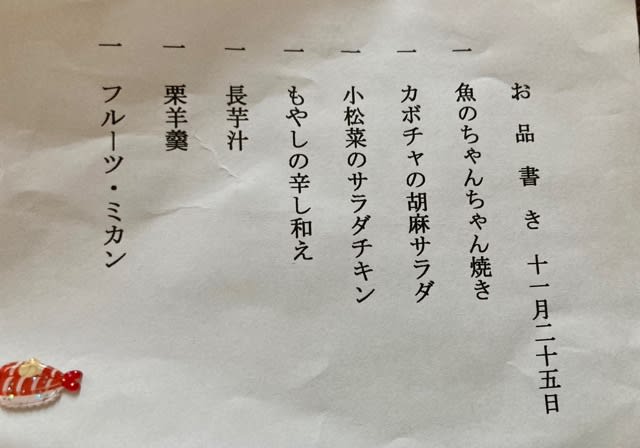 お品書き 十一月二十五日
一 魚のちゃんちゃん焼き
一 カボチャの胡麻サラダ
一 小松菜のサラダチキン
一 もやしの辛し和え
一 長芋汁
一 栗羊羹
一 フルーツ・ミカン